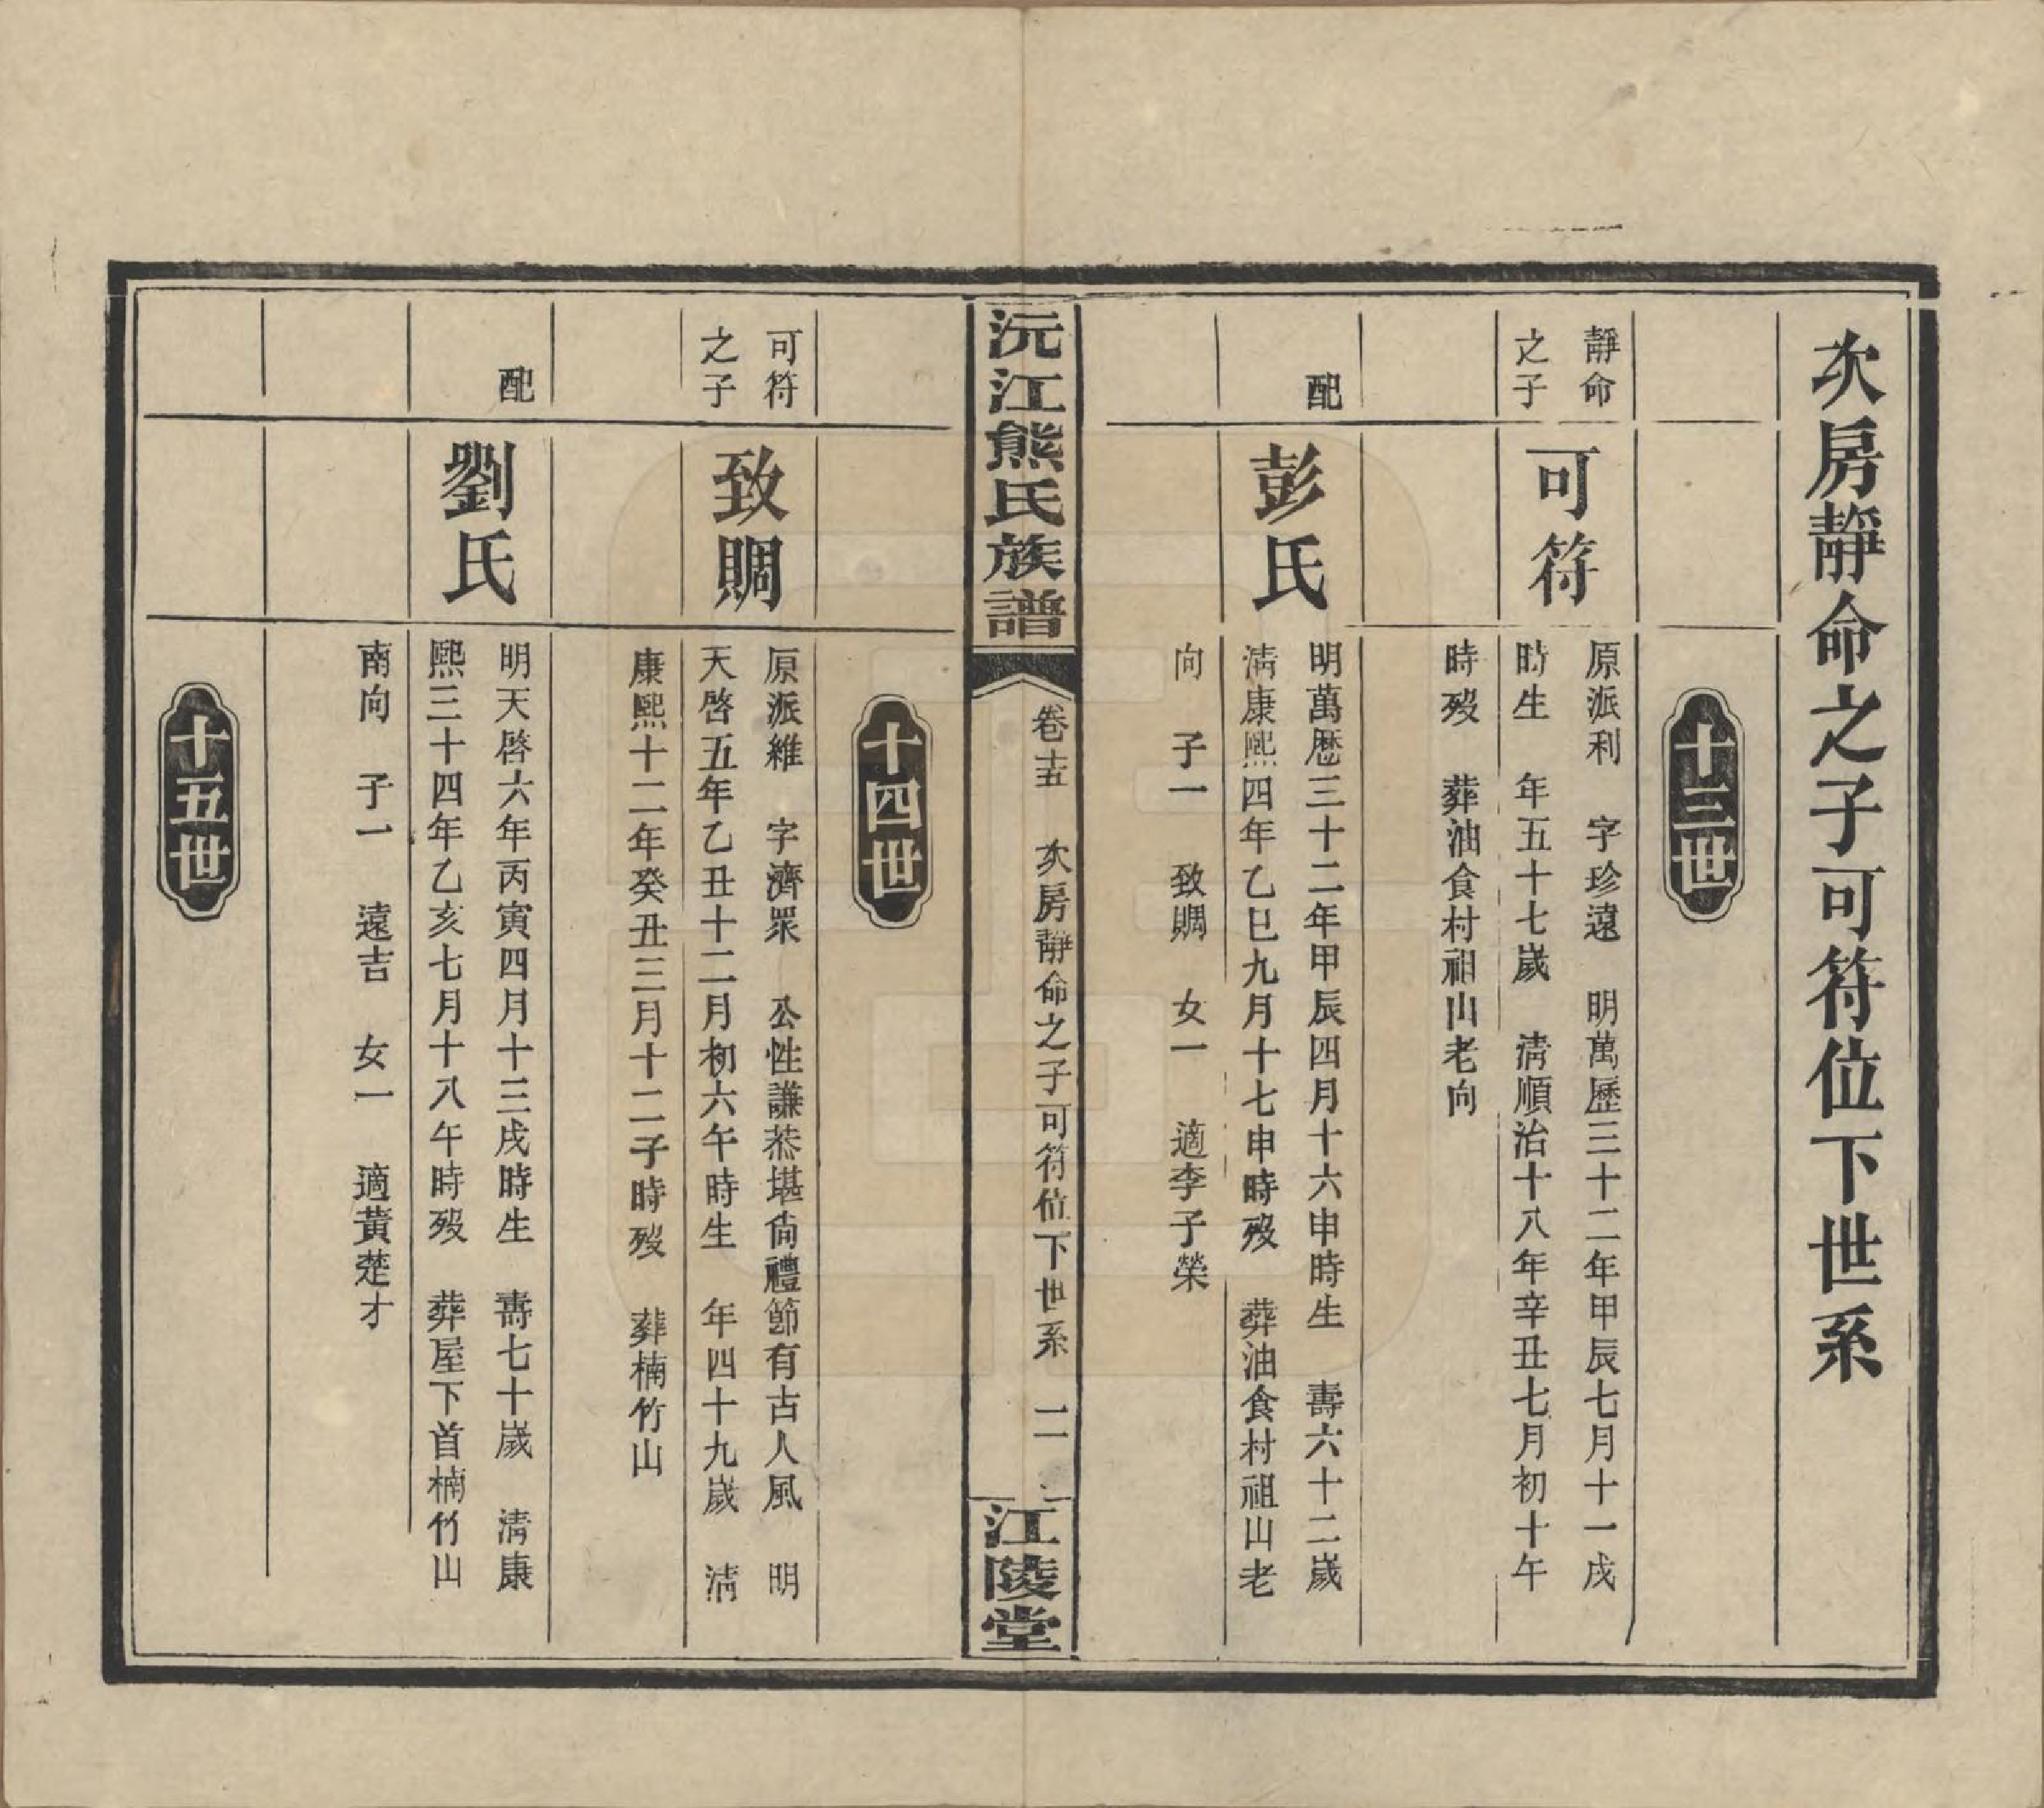 次房靜命之子可符位下世系
十三世
靜命
之子
可符
原派利　字珍遠　明萬歷三十二年甲辰七月十一戌
時生　年五十七歲　清順治十八年辛丑七月初十午
時歿　葬油食村祖山老向
配
彭氏
明萬歷三十二年甲辰四月十六申時生　壽六十二歲
清康熙四年乙巳九月十七申時歿　葬油食村祖山老
向　子一　致賙　女一　適李子榮
沅江熊氏族譜
卷十五　次房靜命之子可符位下世系　二
江陵堂
十四世
可符
之子
致賙
原派維　字濟眾　公性謙恭堪尚禮節有古人風　明
天啓五年乙丑十二月初六午時生　年四十九歲　清
康熙十二年癸丑三月十二子時歿　葬楠竹山
配
劉氏
明天啓六年丙寅四月十三戌時生　壽七十歲　清康
熙三十四年乙亥七月十八午時歿　葬屋下首楠竹山
南向　子一　遠吉　女一　適黃楚才
十五世